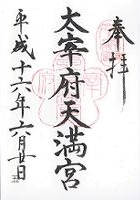 奉拝
太宰府天満宮
平成十六年六月廿五日